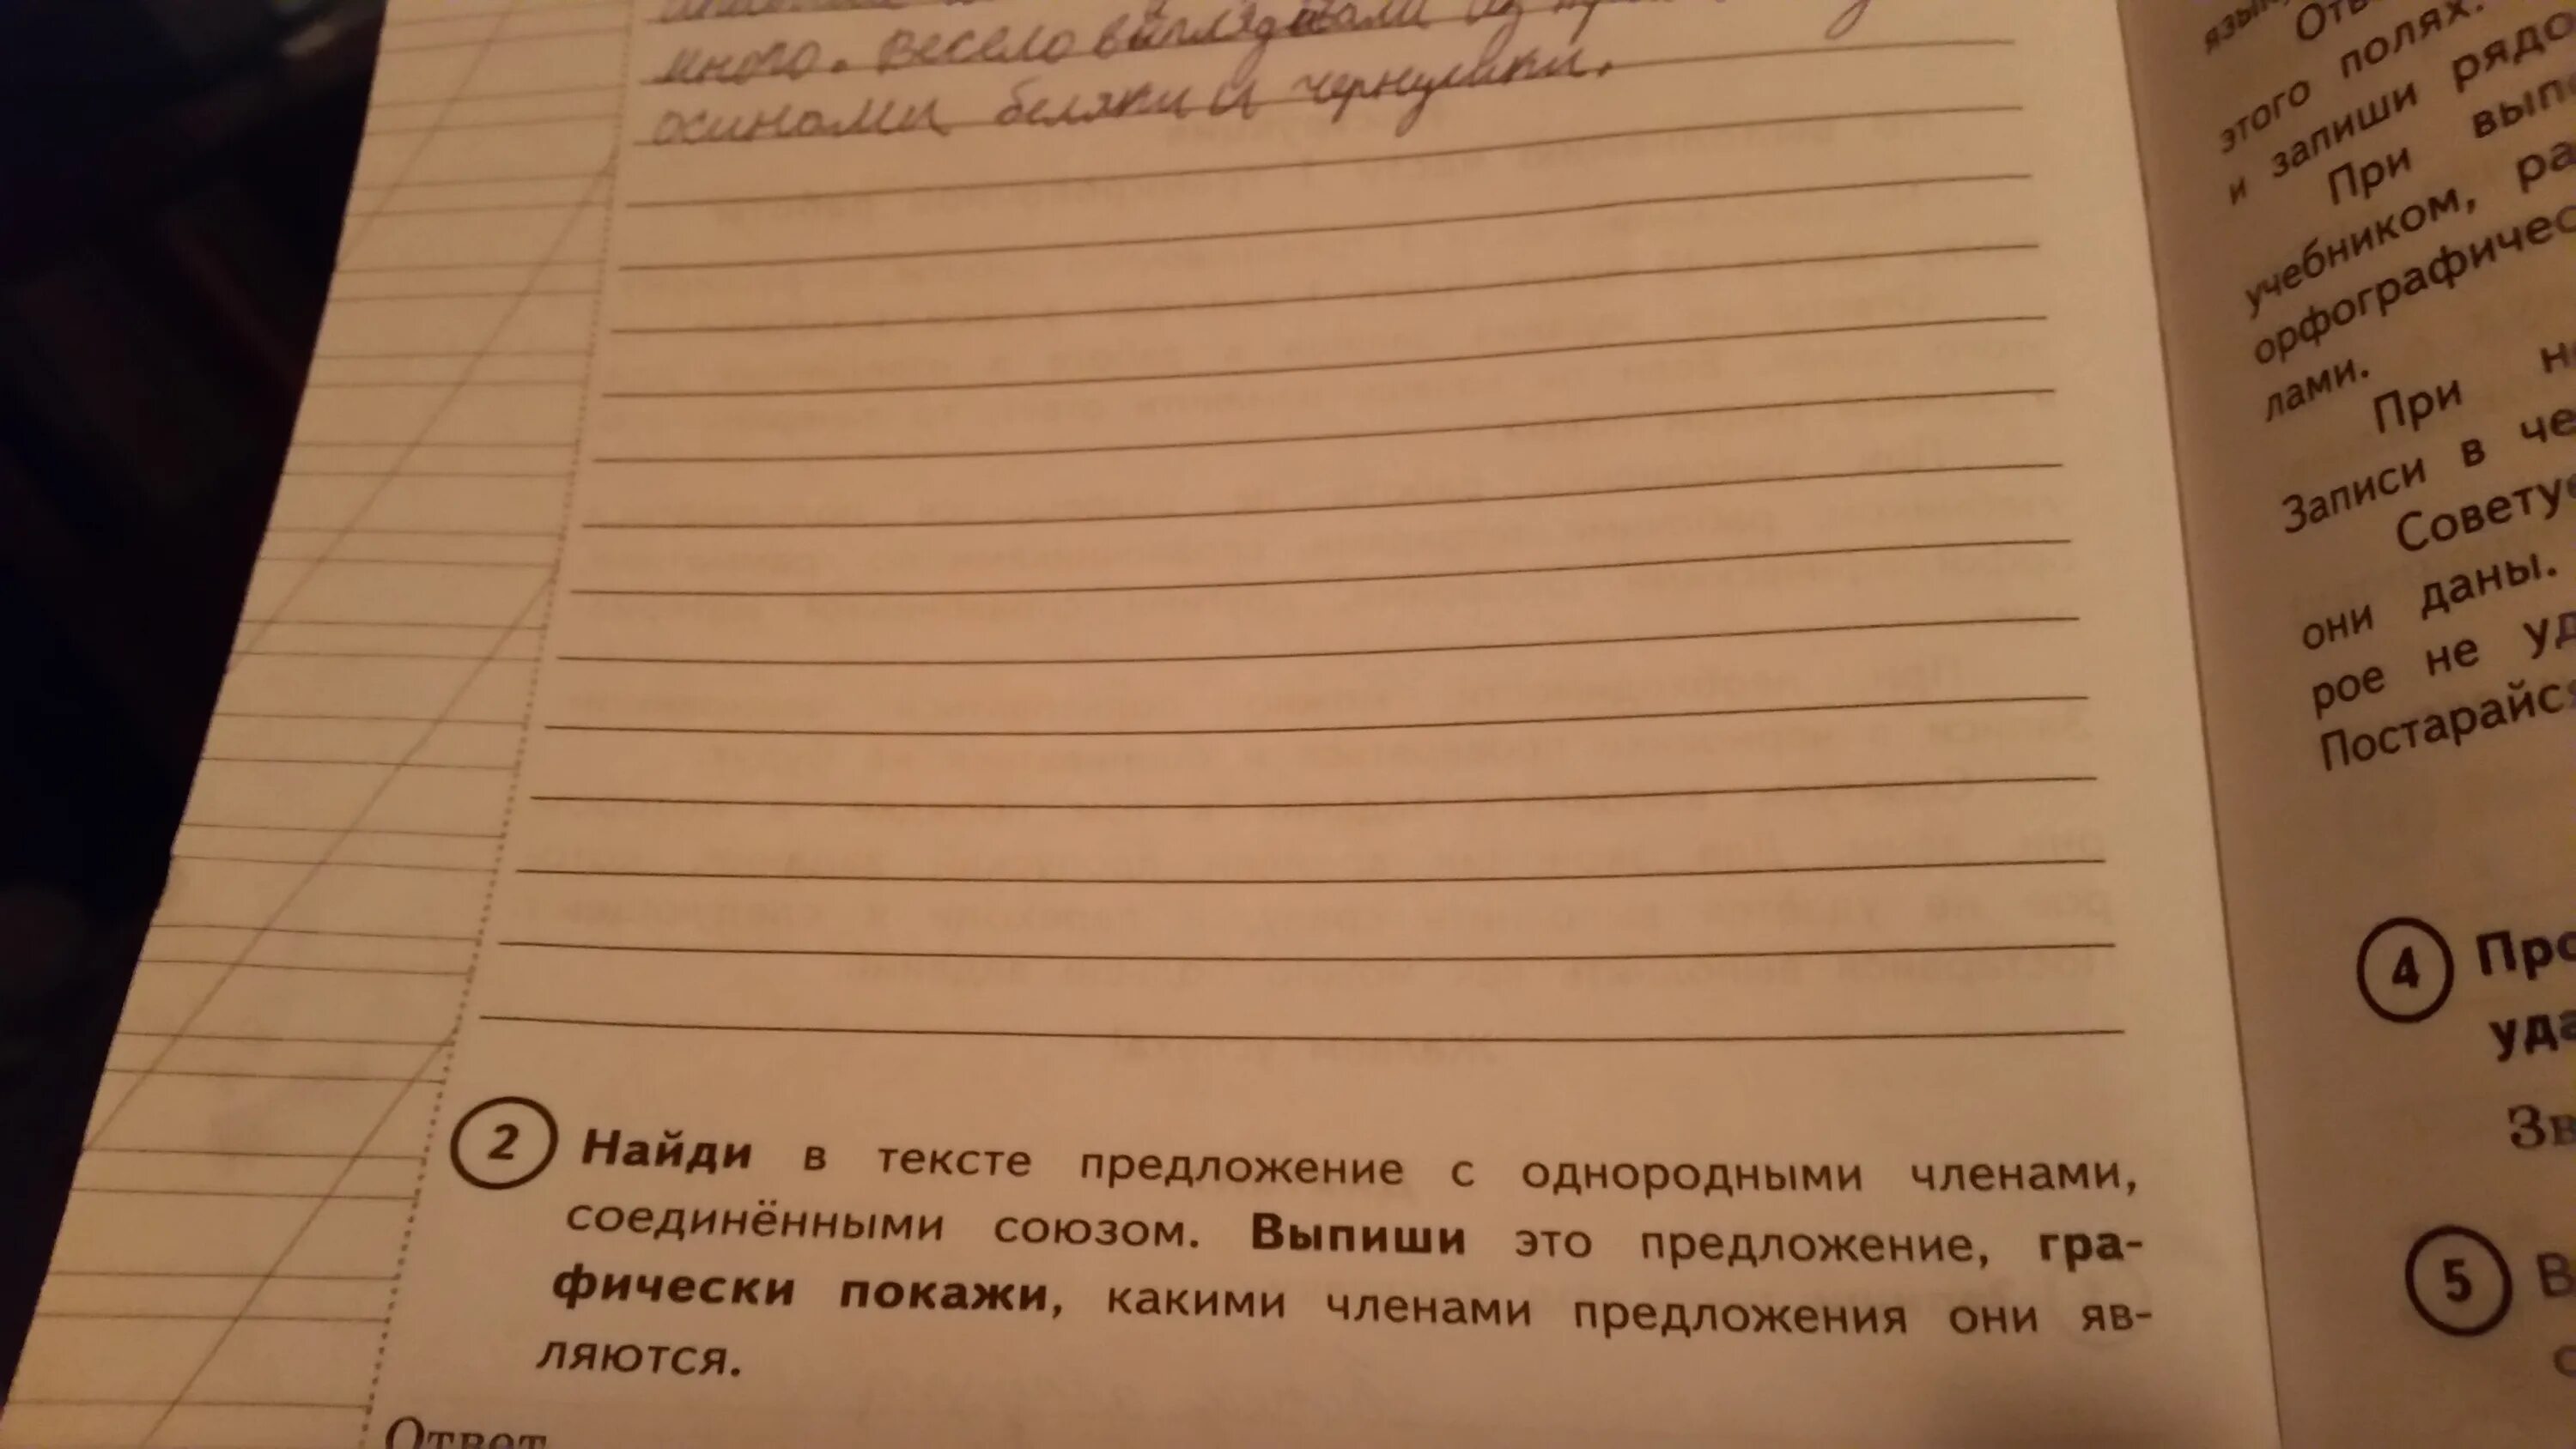 много. Весело выглядывали из
осинами беляки и чернушки.
2 Найди в тексте предложение с однородными членами,
соединёнными союзом. Выпиши это предложение, гра-
фически покажи, какими членами предложения они яв-
ляются.
Ответ
этого полях.
и запиши рядо
При вып
учебником, ра
орфографичес
лами.
При н
Записи в че
Совету
они даны.
рое не уд
Постарайс
4 Про
уда
Зв
5 В
с